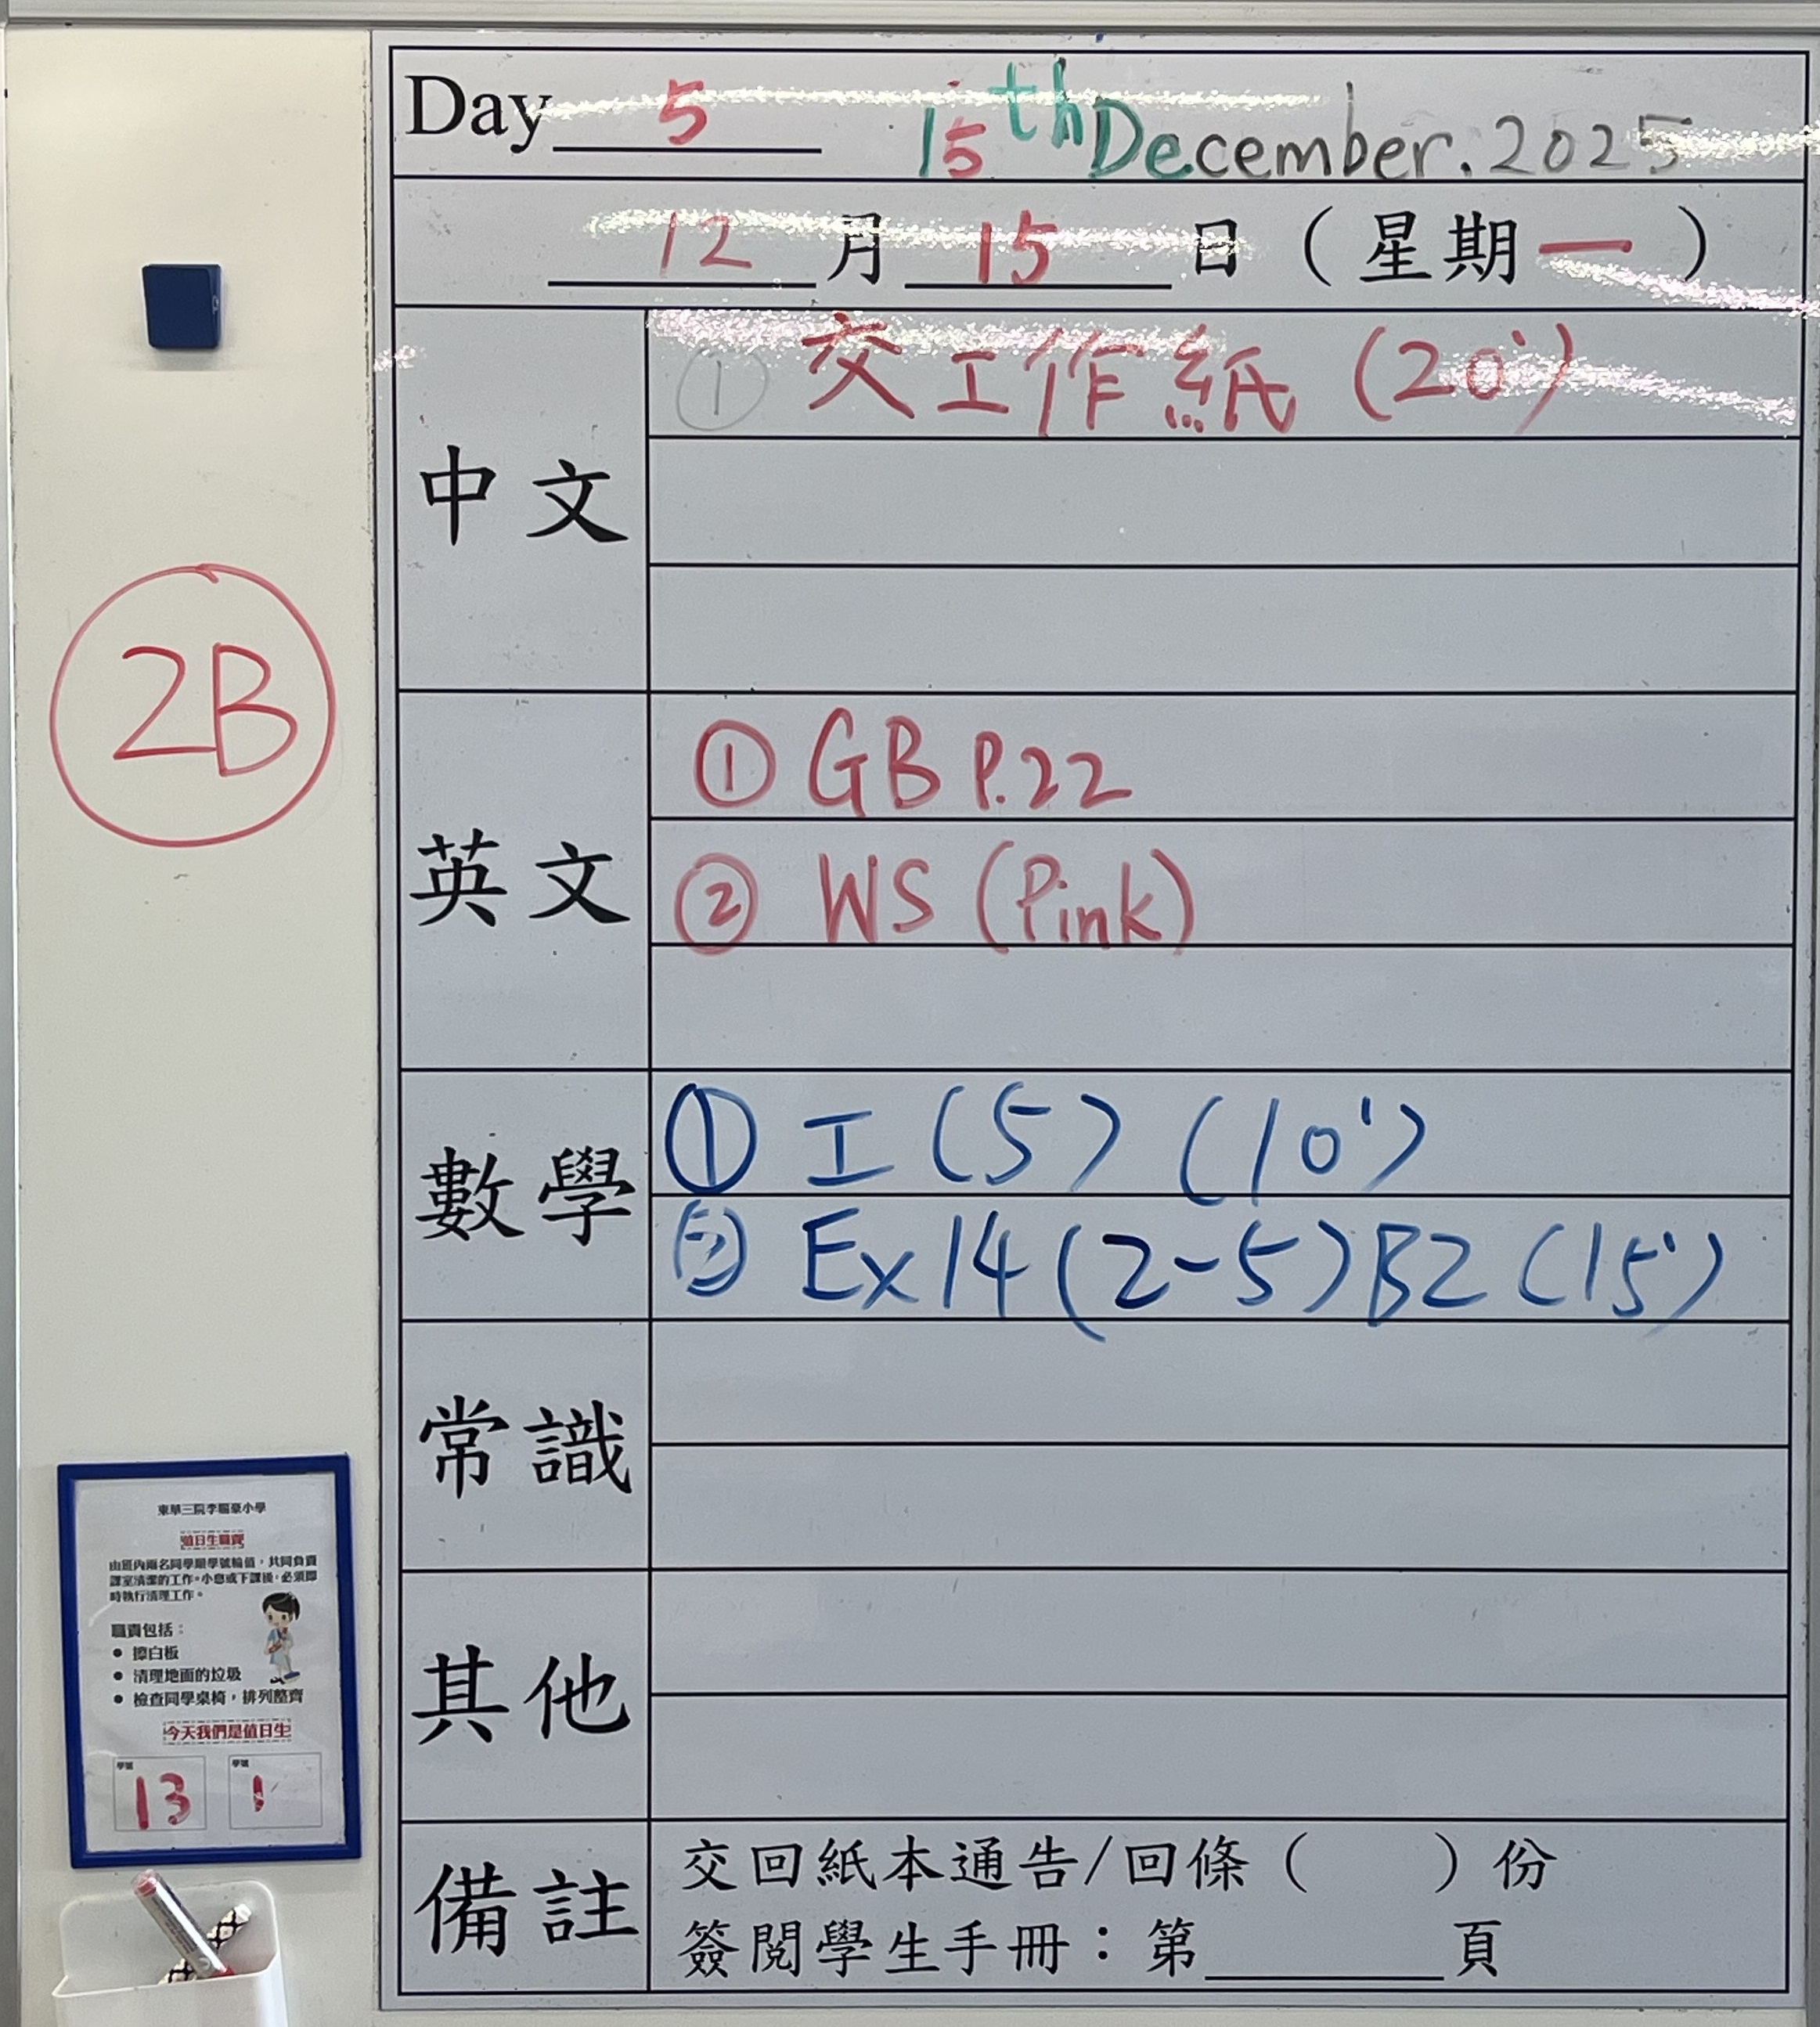 Day 5 15th December. 2025
12 月 15 日 ( 星期 一 )
中文
① 交工作紙 (20')
2B
英文
① GB P.22
② WS (Pink)
數學
① 工 (5) (10')
② Ex14 (2-5) B2 (15')
常識
其他
備註
交回紙本通告/回條 ( ) 份
簽閱學生手冊:第____頁
值日生職責
由班內兩名同學順學號輪值,共同負責
課室清潔的工作。小息或下課後,必須即
時執行清理工作。
職責包括:
• 擦白板
• 清理地面的垃圾
• 檢查同學桌椅,排列整齊
今天我們是值日生
學號 學號
13 1